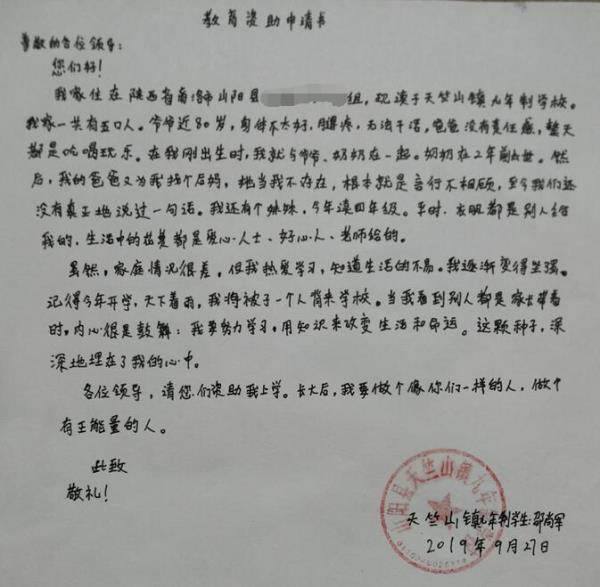 教育资助申请书
尊敬的各位领导：
您们好！
我家住在陕西省商洛市山阳县组，现读于天竺山镇九年制学校。
我家一共有五口人。爷爷近80岁，身体不太好，腰疼，无法干活，爸爸没有责任感，整天
都是吃喝玩乐。在我刚出生时，我就与爷爷、奶奶在一起。奶奶在2年前去世。然
后，我的爸爸又为我找个后妈，她当我不存在，根本就是言行不相顾，至今我们还
没有真正地说过一句话。我还有个妹妹，今年读四年级。平时，衣服都是别人给
我的，生活中的花费都是爱心人士、好心人、老师给的。
虽然，家庭情况很差，但我热爱学习，知道生活的不易。我逐渐变得坚强。
记得今年开学，天下着雨，我将被子一个人背来学校。当我看到别人都是家长带着
时，内心很是鼓舞：我要努力学习，用知识来改变生活和命运。这颗种子，深
深地埋在了我的心中。
各位领导，请您们资助我上学。长大后，我要做个像你们一样的人，做个
有正能量的人。
此致
敬礼！
山阳县天竺山镇九年制学校
天竺山镇九年制学生：邵尚军
2019年9月27日